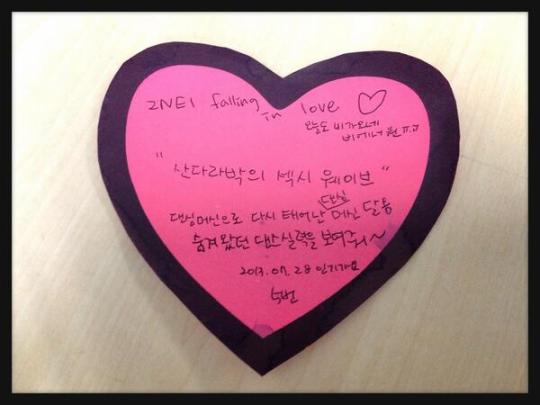 2NE1 falling in love ♡
오늘도 비가오네
" 산다라박의 섹시 웨이브 "
댄싱
댄싱머신으로 다시 태어난 머신 달롱
숨겨왔던 댄스실력을 보여줘~
2013.07.28 인기가요